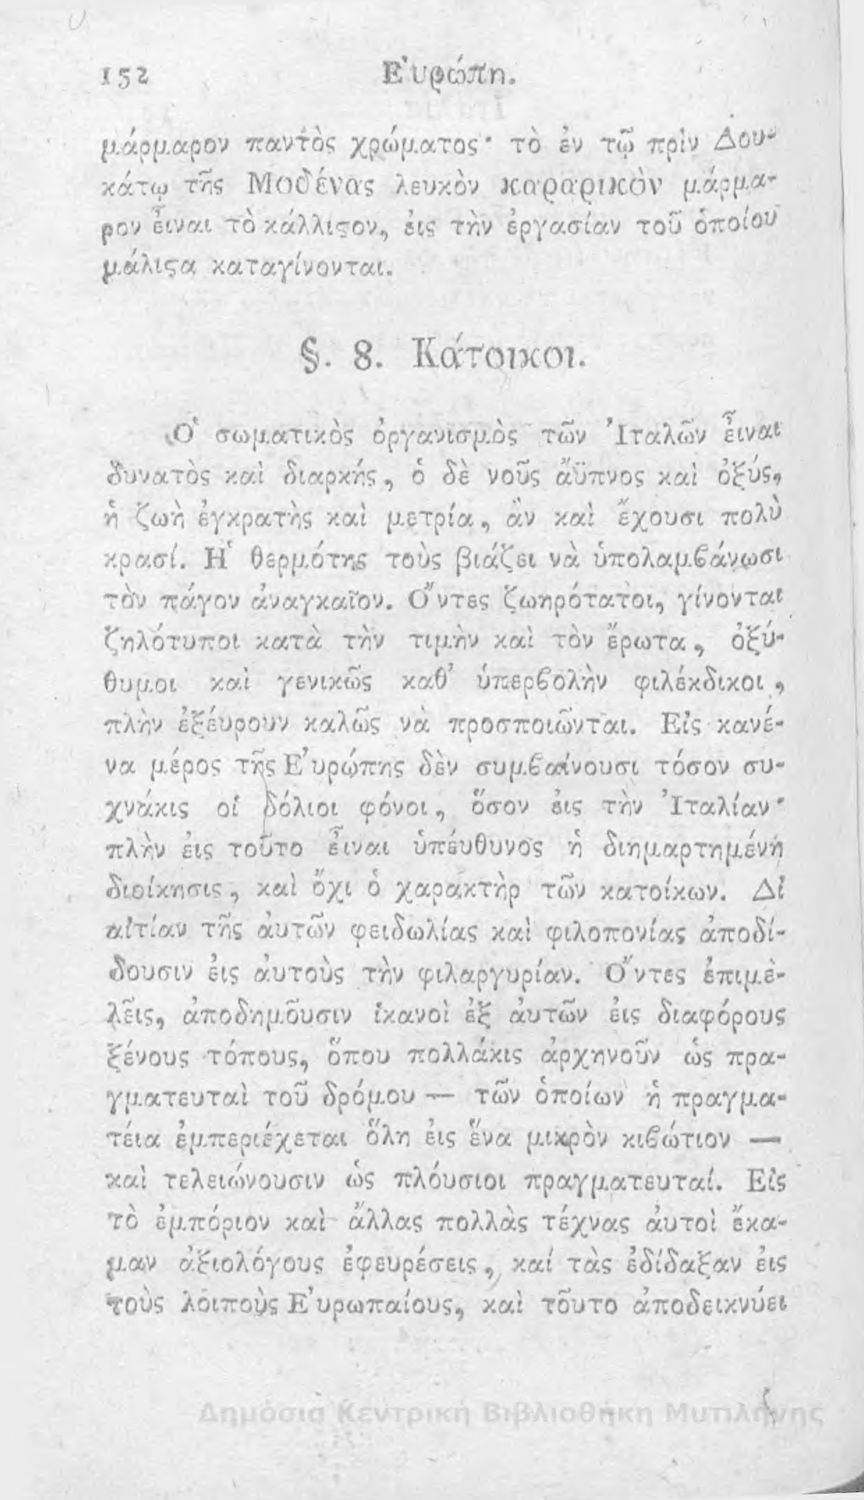 152 Εὐρώπη.
μάρμαρον παντὸς χρώματος· τὸ ἐν τῷ πρὶν Δου-
κάτῳ τῆς Μοδένας λευκὸν καραρικὸν μάρμα-
ρον εἶναι τὸ κάλλιϛον, εἰς τὴν ἐργασίαν τοῦ ὁποίου
μάλιϛα καταγίνονται.
§. 8. Κάτοικοι.
Ὁ σωματικὸς ὀργανισμὸς τῶν Ἰταλῶν εἶναι
δυνατὸς καὶ διαρκής, ὁ δὲ νοῦς ἄϋπνος καὶ ὀξύς,
ἡ ζωὴ ἐγκρατὴς καὶ μετρία, ἂν καὶ ἔχουσι πολὺ
κρασί. Ἡ θερμότης τοὺς βιάζει νὰ ὑπολαμβάνωσι
τὸν πάγον ἀναγκαῖον. Ὄντες ζωηρότατοι, γίνονται
ζηλότυποι κατὰ τὴν τιμὴν καὶ τὸν ἔρωτα, ὀξύ-
θυμοι καὶ γενικῶς καθ’ ὑπερβολὴν φιλέκδικοι,
πλὴν ἐξέυρουν καλῶς νὰ προσποιῶνται. Εἰς κανέ-
να μέρος τῆς Εὐρώπης δὲν συμβαίνουσι τόσον συ-
χνάκις οἱ δόλιοι φόνοι, ὅσον εἰς τὴν Ἰταλίαν·
πλὴν εἰς τοῦτο εἶναι ὑπέυθυνος ἡ διημαρτημένη
διοίκησις, καὶ ὄχι ὁ χαρακτὴρ τῶν κατοίκων. Δι
αἰτίαν τῆς ἀυτῶν φειδωλίας καὶ φιλοπονίας ἀποδί-
δουσιν εἰς ἀυτοὺς τὴν φιλαργυρίαν. Ὄντες ἐπιμε-
λεῖς, ἀποδημοῦσιν ἱκανοὶ ἐξ ἀυτῶν εἰς διαφόρους
ξένους τόπους, ὅπου πολλάκις ἀρχηνοῦν ὡς πρα-
γματευταὶ τοῦ δρόμου — τῶν ὁποίων ἡ πραγμα-
τέια ἐμπεριέχεται ὅλη εἰς ἕνα μικρὸν κιβώτιον —
καὶ τελειώνουσιν ὡς πλόυσιοι πραγματευταί. Εἰς
τὸ ἐμπόριον καὶ ἄλλας πολλὰς τέχνας ἀυτοὶ ἔκα-
μαν ἀξιολόγους ἐφευρέσεις, καὶ τὰς ἐδίδαξαν εἰς
τοὺς λοιποὺς Εὐρωπαίους, καὶ τοῦτο ἀποδεικνύει
Δημόσια Κεντρική Βιβλιοθήκη Μυτιλήνης